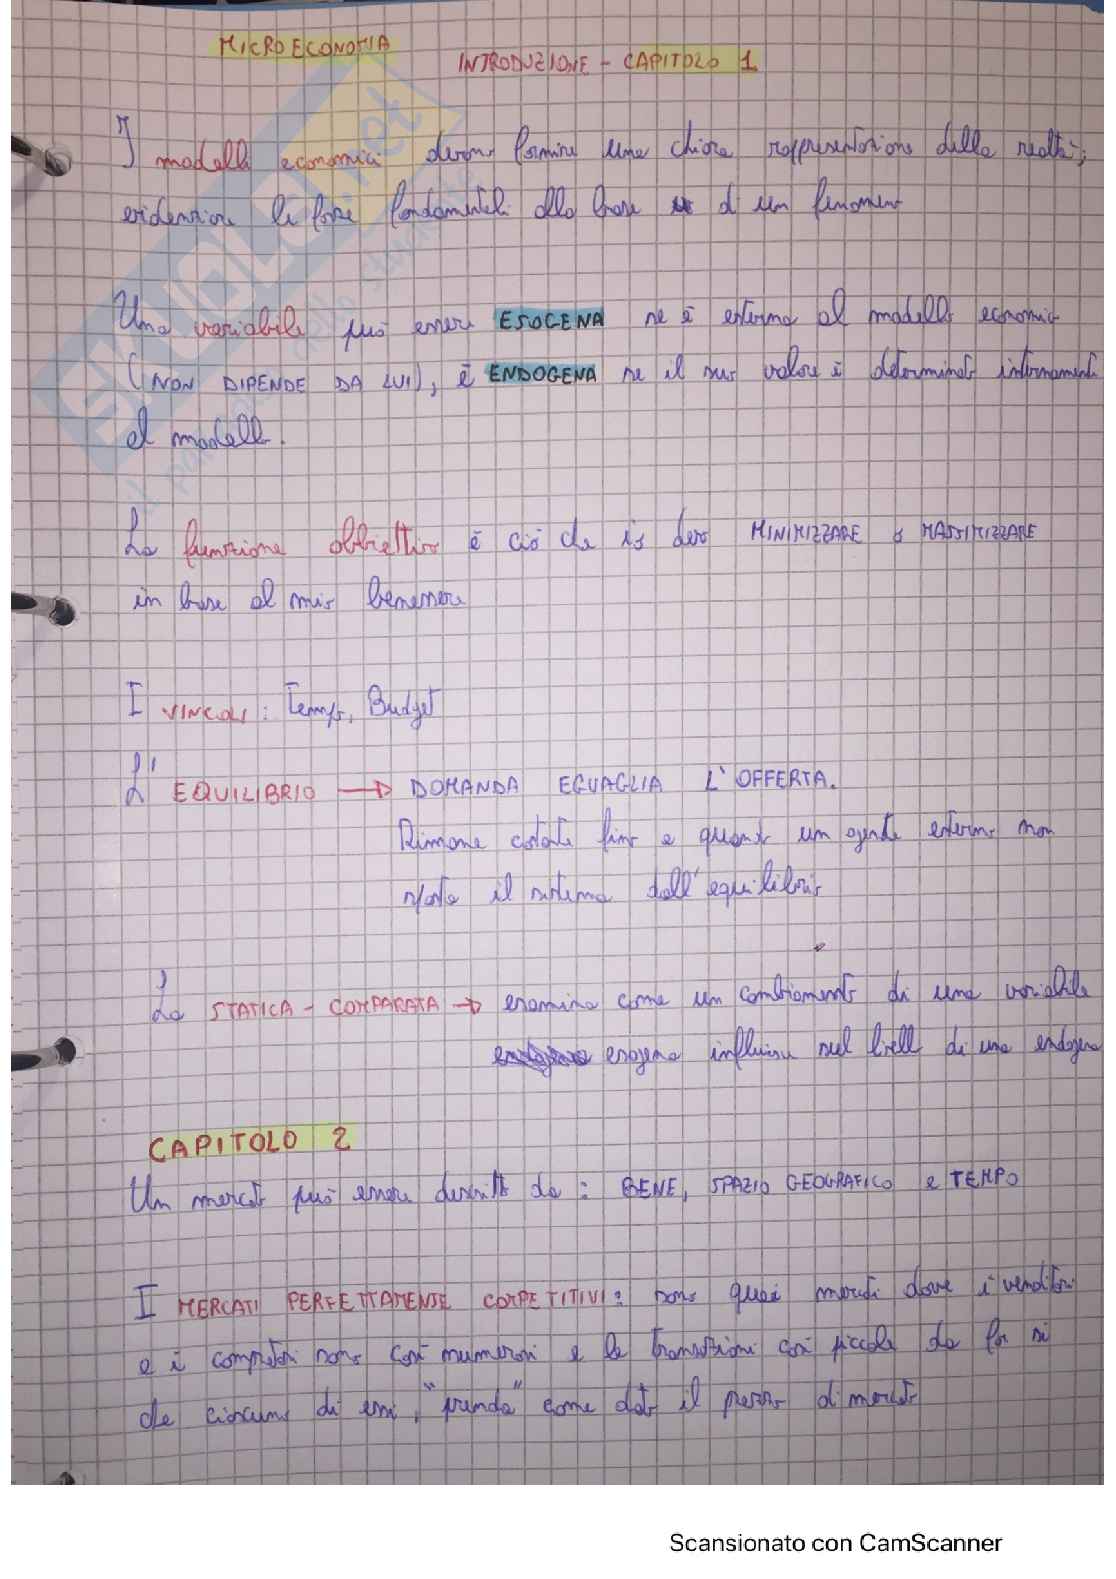 MICROECONOMIA
INTRODUZIONE - CAPITOLO 1
I modelli economici devono fornire una chiara rappresentazione della realtà;
evidenziare le forze fondamentali alla base d un fenomeno
Una variabile può essere ESOGENA se è esterna al modello economico
(NON DIPENDE DA LUI), è ENDOGENA se il suo valore è determinato internamente
al modello.
La funzione obbiettivo è ciò che io devo MINIMIZZARE o MASSIMIZZARE
in base al mio benessere
I VINCOLI: Tempo, Budget
L' EQUILIBRIO → DOMANDA EGUAGLIA L'OFFERTA.
Rimane costate fino a quando un agente esterno non
sposta il sistema dall'equilibrio
La STATICA - COMPARATA → esamina come un cambiamento di una variabile
esogena influisce sul livello di una endogena
CAPITOLO 2
Un mercato può essere descritto da: BENE, SPAZIO GEOGRAFICO e TEMPO
I MERCATI PERFETTAMENTE COMPETITIVI: sono quei mercati dove i venditori
e i compratori sono così numerosi e le transazioni così piccole da far sì
che ciascuno di essi, "prenda" come dato il prezzo di mercato
SKUOLA.net
il paradiso dello studente
Scansionato con CamScanner